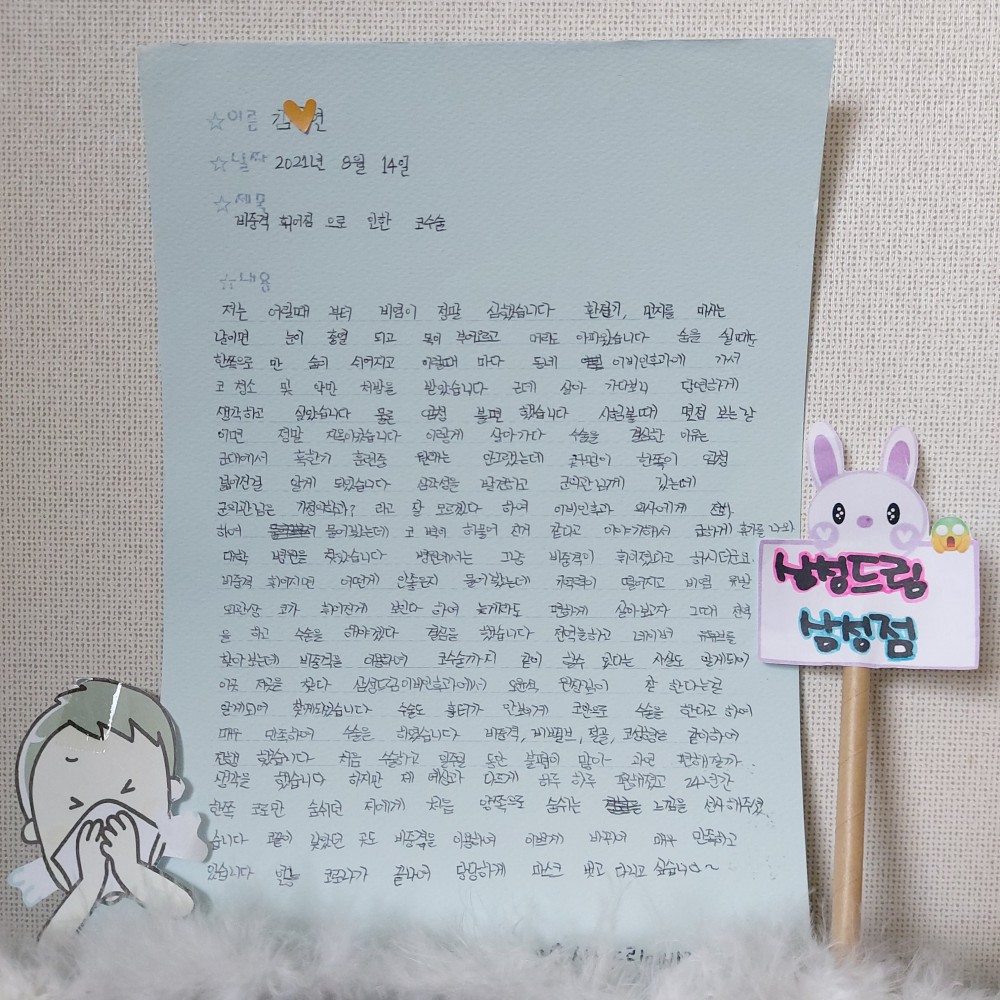 ☆이름 김 현
☆날짜 2021년 8월 14일
☆제목
비중격 휘어짐 으로 인한 코수술
☆내용
저는 어릴때 부터 비염이 정말 심했습니다 환절기, 먼지를 마시는
날이면 눈이 충혈 되고 목이 부어오르고 머리도 아파왔습니다 숨을 쉴때도
한쪽으로 만 숨이 쉬어지고 이럴때 마다 동네 이비인후과에 가서
코 청소 및 약만 처방을 받았습니다 근데 살아 가다보니 당연하게
생각하고 살았습니다 물론 엄청 불편 했습니다 시험볼때 면접 보는날
이면 정말 지옥이였습니다 이렇게 살아가다 수술을 결심한 이유는
군대에서 혹한기 훈련중 원래는 안그랬는데 코면이 한쪽이 엄청
넓어진걸 알게 되었습니다 심각성을 발견하고 군의관님께 갔는데
군의관님은 가정의학과? 라고 잘 모르겠다 하여 이비인후과 의사에게
하여 물어봤는데 코 벽이 허물어 진거 같다고 이야기해서 급하게 휴가를 나와
대학 병원을 찾았습니다 병원에서는 그냥 비중격이 휘어졌다고 하시더군요
비중격 휘어지면 어떤게 안좋은지 물어봤는데 기억력이 떨어지고 비염 유발
외관상 코가 휘어진게 보인다 하여 늦게라도 편하게 살아보고자 그때 전역
을 하고 수술을 해야겠다 결심을 했습니다 전역을하고 네이버 유튜브를
찾아보는데 비중격을 이용하여 코수술까지 같이 할수 있다는 사실도 알게되어
이곳 저곳을 찾다 삼성드림이비인후과에서 오윤석 원장님이 잘 한다는걸
알게되어 찾게되었습니다 수술도 흉터가 안보이게 코안으로 수술을 한다고 하여
매우 만족하여 수술을 하였습니다 비중격, 비밸브, 절골, 코성형을 같이하여
진행 했습니다 처음 수술하고 일주일 동안 불편이 많아 과연 편해질까
생각을 했습니다 하지만 제 예상과 다르게 하루 하루 편해졌고 24년간
한쪽 코로만 숨쉬던 저에게 처음 양쪽으로 숨쉬는 느낌을 선사해주셨
습니다 코끝이 낮았던 곳도 비중격을 이용하여 이쁘게 바뀌어 매우 만족하고
있습니다 코로나가 끝나여 당당하게 마스크 벗고 다니고 싶습니다~
삼성드림
삼성점